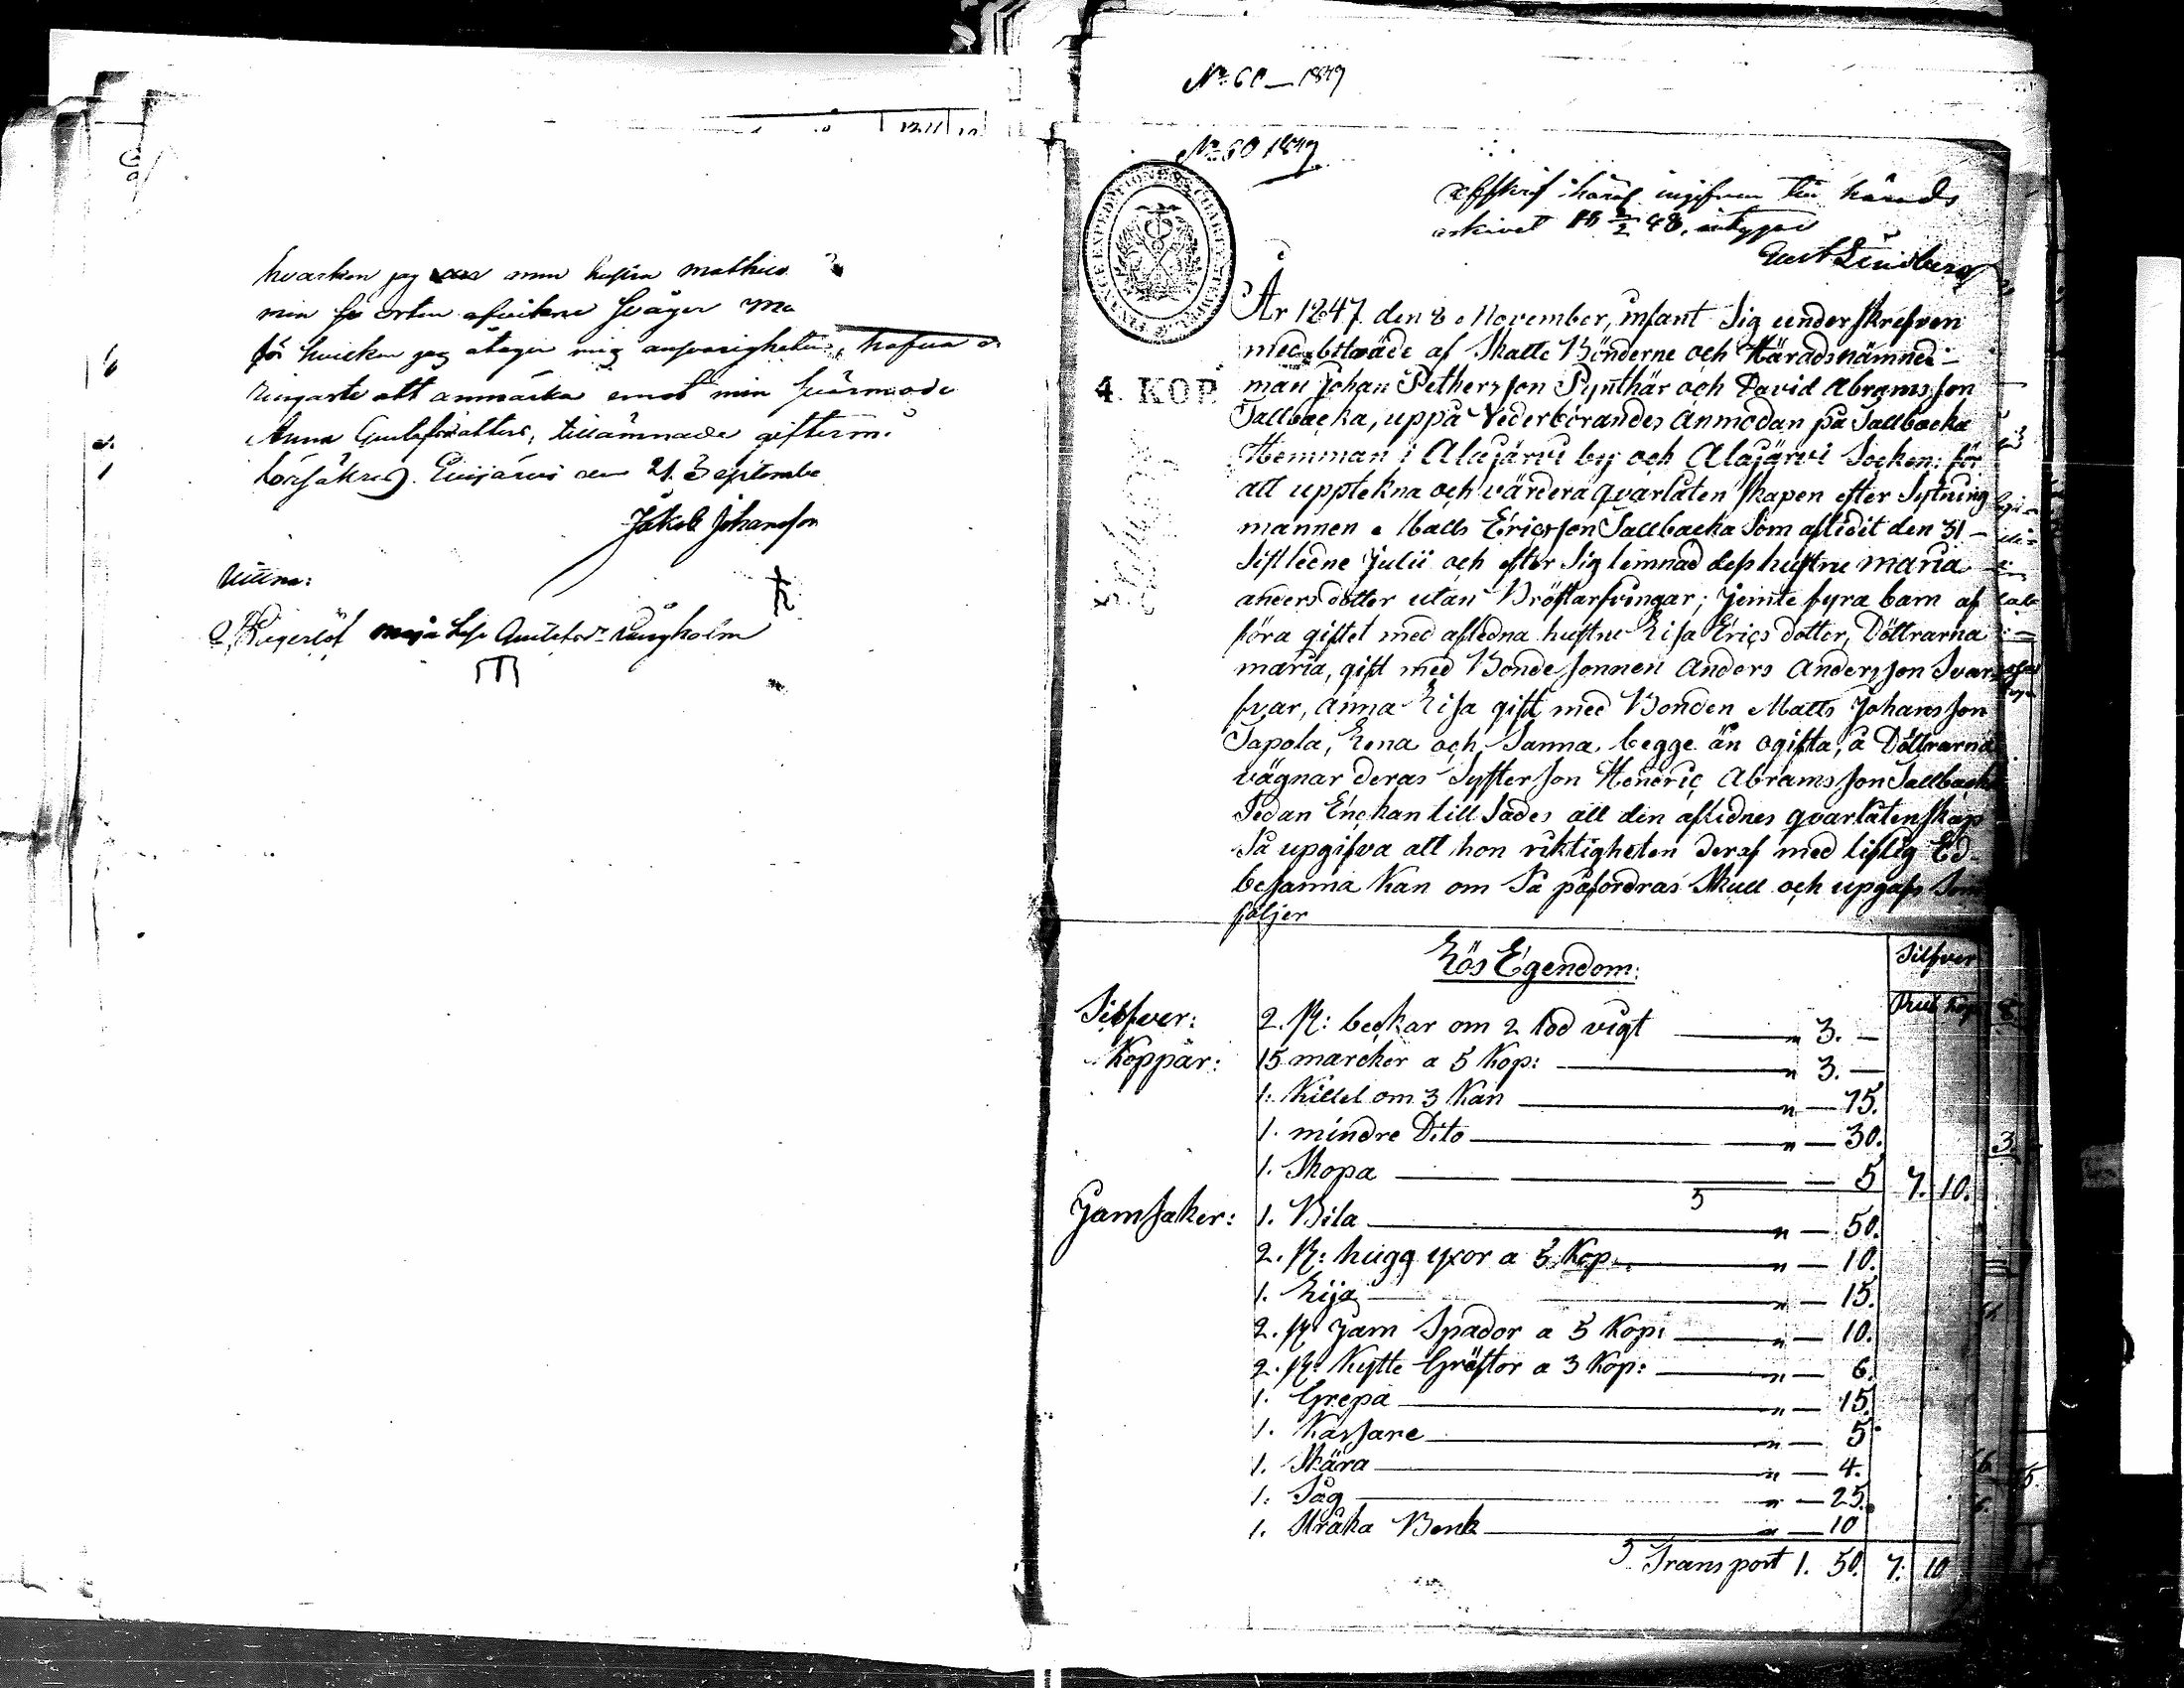 hvarken jag min hustru
min orten afvikne Svåger Ma
för hvicken jag åtager mig ansvarigheten, hafva
ringaste att anmärka emot min
Anna tillämnade gifterm:
den 21 September
Jakob Johansson
Vittna:
maja Lisa Ljungholm
No 60 – 1847
No 60 1847
afskrif häraf ingifven till härads
arkivet 2/2 48, intygar
Gust Lindberg
FINANCE EXPEDITIONENS CHARTÆ STEMPEL
4. KOP
År 1847 den 8 November, infant Sig underskrefven
med bitträde af Skatte Bönderne och Häradsnämnde-
man Johan Pethersson Pynthär och David Abramsson
Sallbacka, uppå Vederbörandes Anmodan på Sallbacka
Hemman i Alajärvi by och Alajärvi Socken: för
att upptekna och värdera qvarlåtenskapen efter Sytning
mannen Matts Ericsson Sallbacka Som aflidit den 31 –
Sistledne Julii och efter Sig lemnad dess hustru Maria
anders dotter utan Bröstarfvingar; jemte fyra barn af
föra giftet med afledna hustru Lisa Erics dotter, Döttrarna
maria, gift med Bonde Sonnen Anders Andersson Svar
fvar, Anna Lisa gift med Bonden Matts Johansson
Sapola, Lena och Sanna begge än ogifta, å Döttrarna
vägnar deras Systerson Hendric Abramsson Sallbacka
Sedan Enckan till Sades att den aflidnes qvarlåtenskap
Så upgifva att hon riktigheten deraf med liflig Ed
besanna Kan om Så påfordras Skull och upgafs Som
följer
Lös Egendom:
Silfver
Rub Kop
Silfver: 2. st: beckar om 2 lod vigt " 3. –
Koppar: 15 marcker a 5 Kop: " 3. –
1. Kittel om 3 Kan " – 75.
1. mindre Dito " – 30.
1. Skopa – 5 7. 10.
Jarnsaker: 1. Bila " – 50.
2. st: hugg yxor a 5 Kop " – 10.
1. Lija " – 15.
2. st Jarn Spador a 5 Kop: " – 10.
2. st: Kytte Gräftor a 3 Kop: " – 6.
1. Grepa " – 15.
1. Kassare " – 5
1. Skära " – 4.
1. Såg " – 25.
1. Stråka Benk " – 10
Transport 1. 50. 7. 10